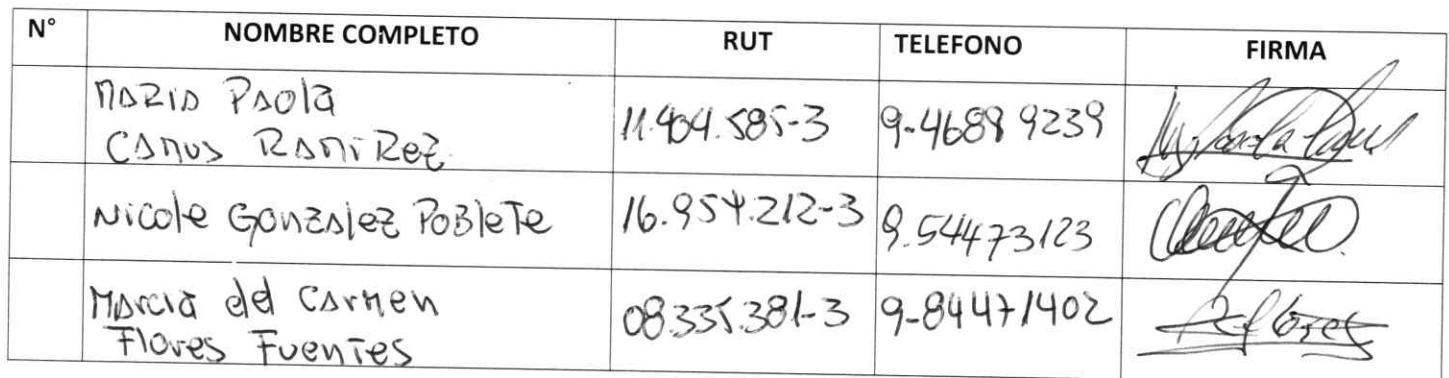 N° NOMBRE COMPLETO RUT TELEFONO FIRMA
MARIA PAola
CAMUS RAMiRez 11.404.585-3 9-4689 9239
Nicole GONZAlez POBleTe 16.954.212-3 9.54473123
MArcia del CArmen
Flores FuenTes 08.335.381-3 9-84471402